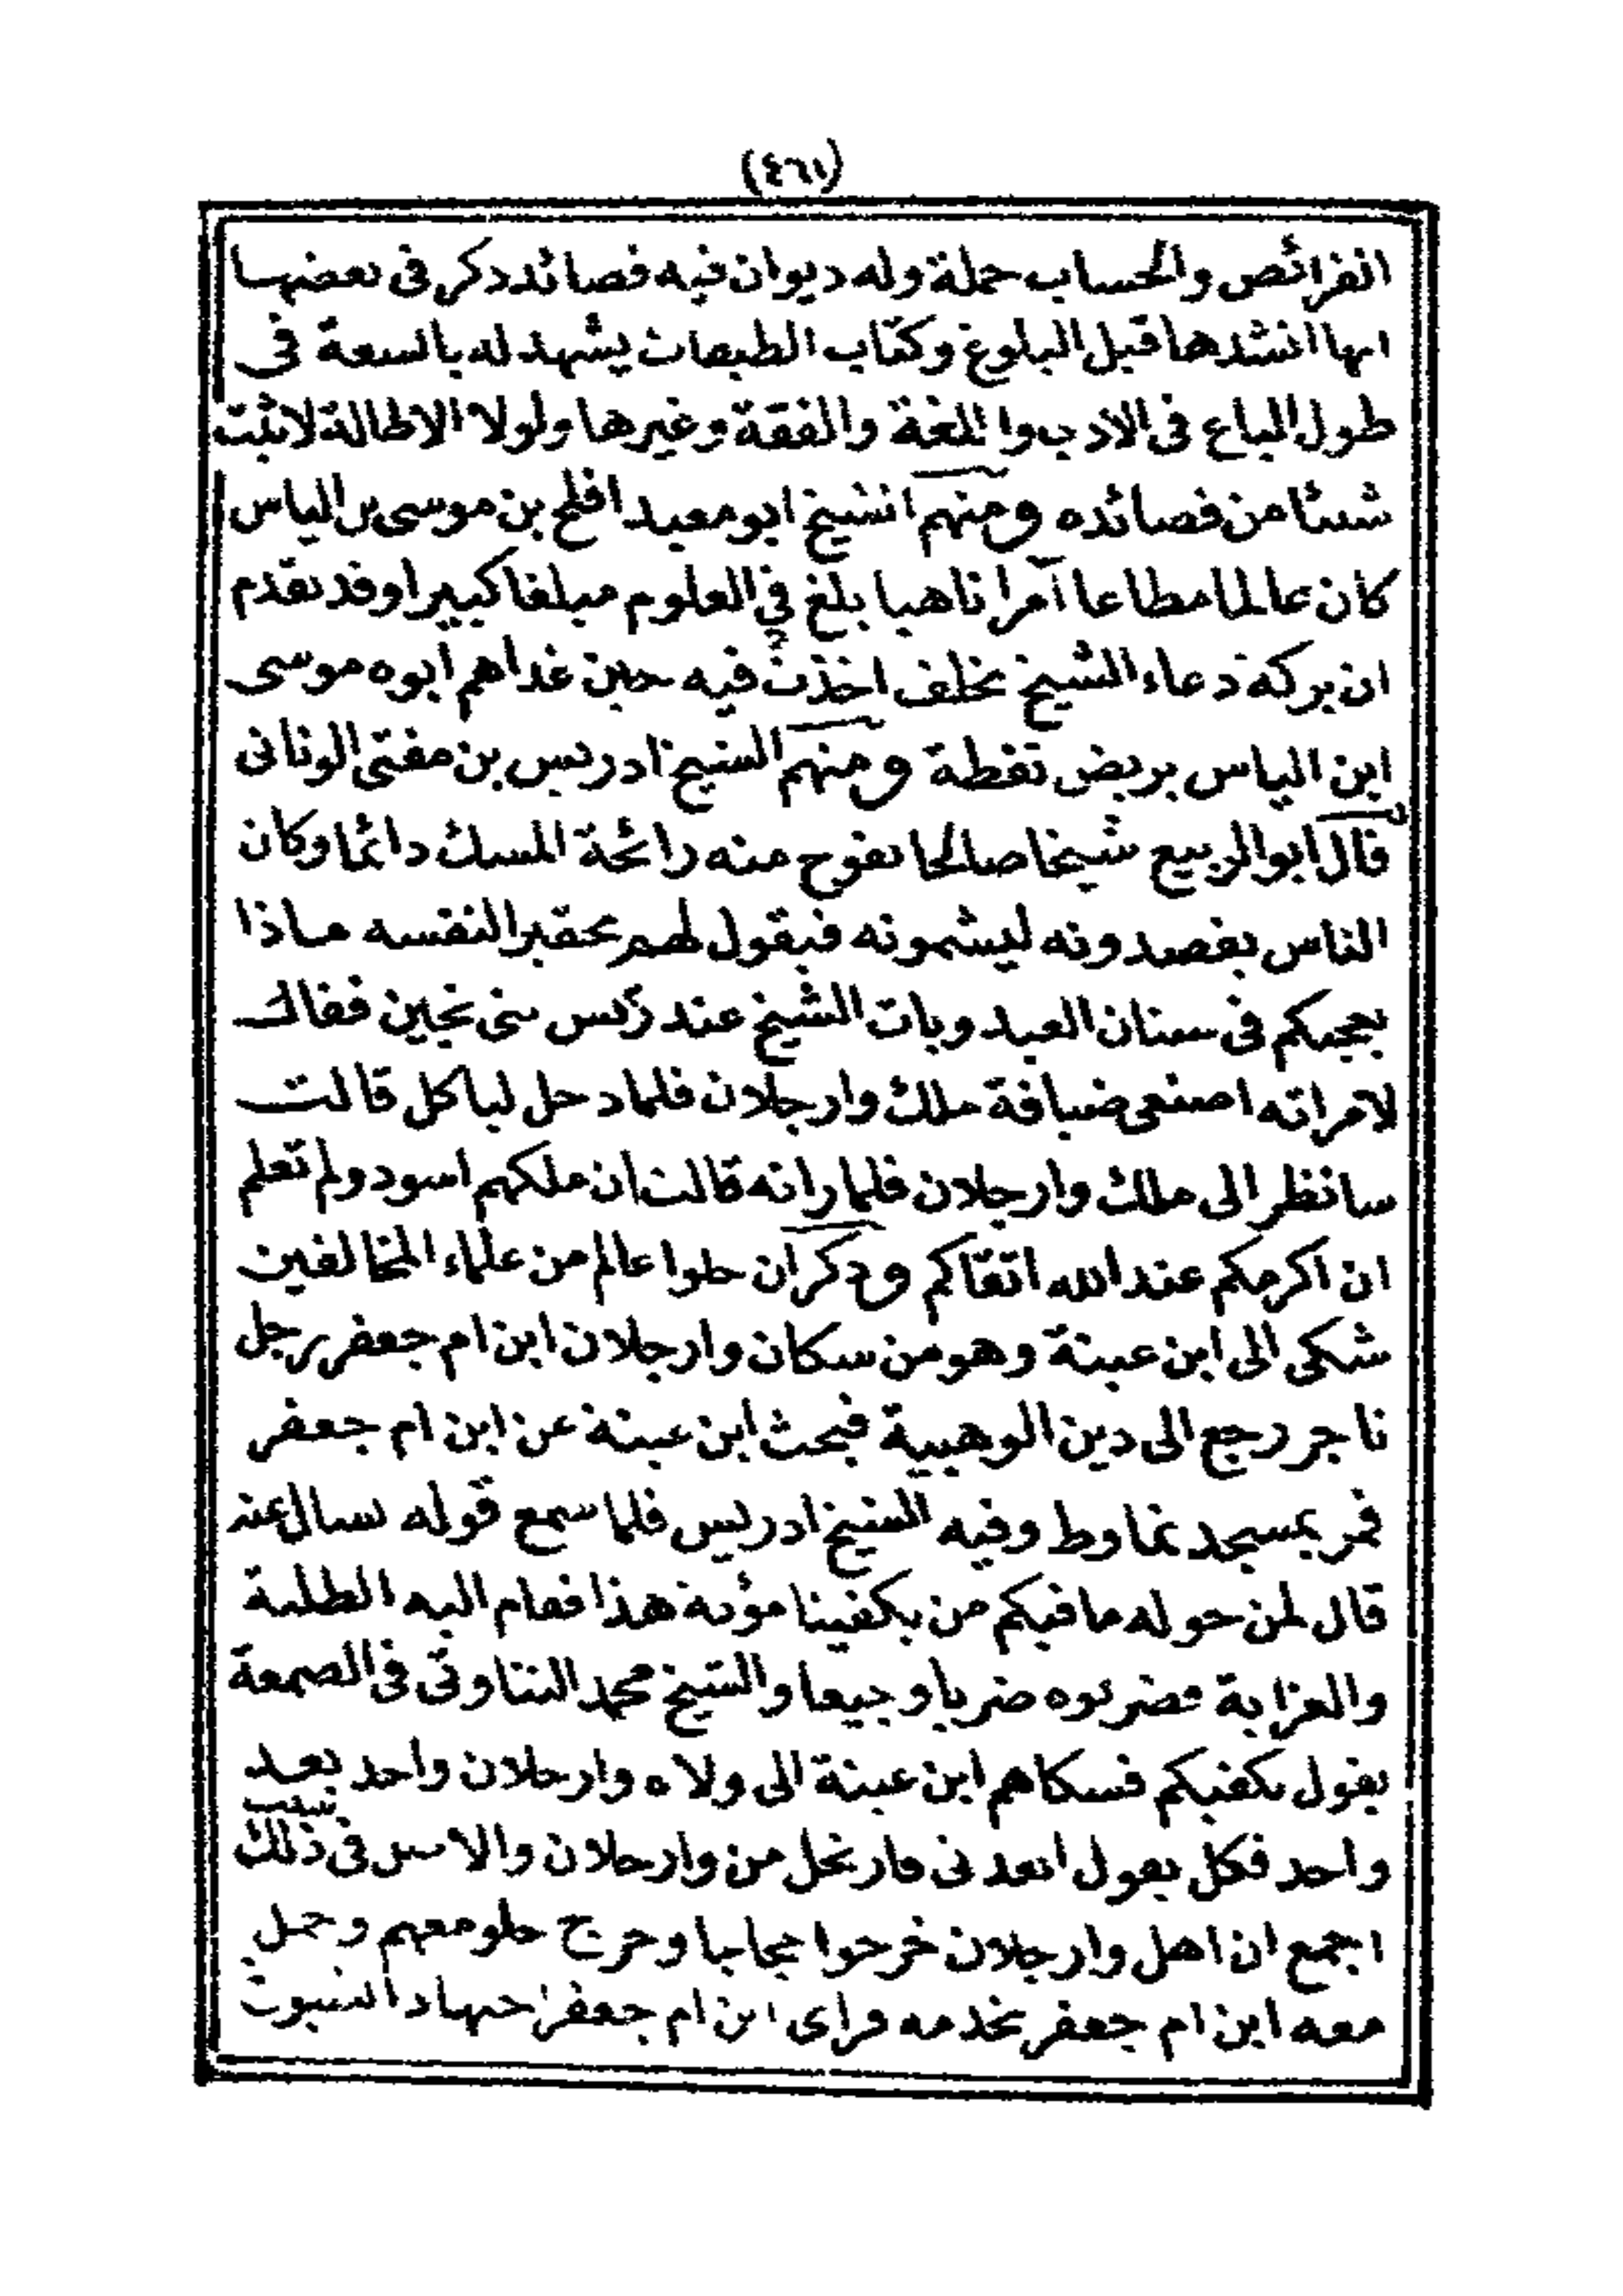 (٤٦١)
الفرائض والحساب جملة وله ديوان فيه قصائد ذكر فى بعضها
انها انشدها قبل البلوغ وكتاب الطبقات يشهد له بالسعة فى
طول الباع فى الادب واللغة والفقة وغيرها ولولا الاطالة لاثبت
شيئا من قصائده ومنهم الشيخ ابو معبد افلح بن موسى بن الياس
كان عالما مطاعا آمرا ناهيا بلغ فى العلوم مبلغا كبيرا وقد تقدم
ان بركة دعاء الشيخ يخلف اخذت فيه حين غداهم ابوه موسى
ابن الياس بربض نفطة ومنهم الشيخ ادريس بن مفتى الونانى
قال ابو الربيع شيخا صالحا تفوح منه رائحة المسك دائما وكان
الناس يقصدونه ليشمونه فيقول لهم تحقيرا لنفسه ماذا
يعجبكم فى صنان العبد وبات الشيخ عند رئيس بنى نجين فقال
لامراته اصنعى ضيافة ملك وارجلان فلما دخل لياكل قالت
سانظر الى ملك وارجلان فلما راته قالت ان ملكهم اسود ولم تعلم
ان اكرمكم عند الله اتقاكم وذكر ان حلوا عالم من علماء المخالفين
شكى الى ابن عبنة وهو من سكان وارجلان ابن ام جعفر رجل
تاجر رجع الى دين الوهبية فبحث ابن عبنة عن ابن ام جعفر
فمر بمسجد تماوط وفيه الشيخ ادريس فلما سمع قوله يسال عنه
قال لمن حوله ما فيكم من يكفينا مؤنة هذا فقام اليه الطلبة
والعزابة فضربوه ضربا وجيعا والشيخ محمد التناوتى فى الصمعة
يقول يكفيكم فشكاهم ابن عبنة الى ولاه وارجلان واحد بعد
واحد فكل يقول ابعد نى فارتحل من وارجلان والاس فى ذلك
اجمع ان اهل وارجلان خرجوا حجاجا وخرج حلو معهم وحمل
معه ابن ام جعفر يخدمه فراى ابن ام جعفر اجتهاد